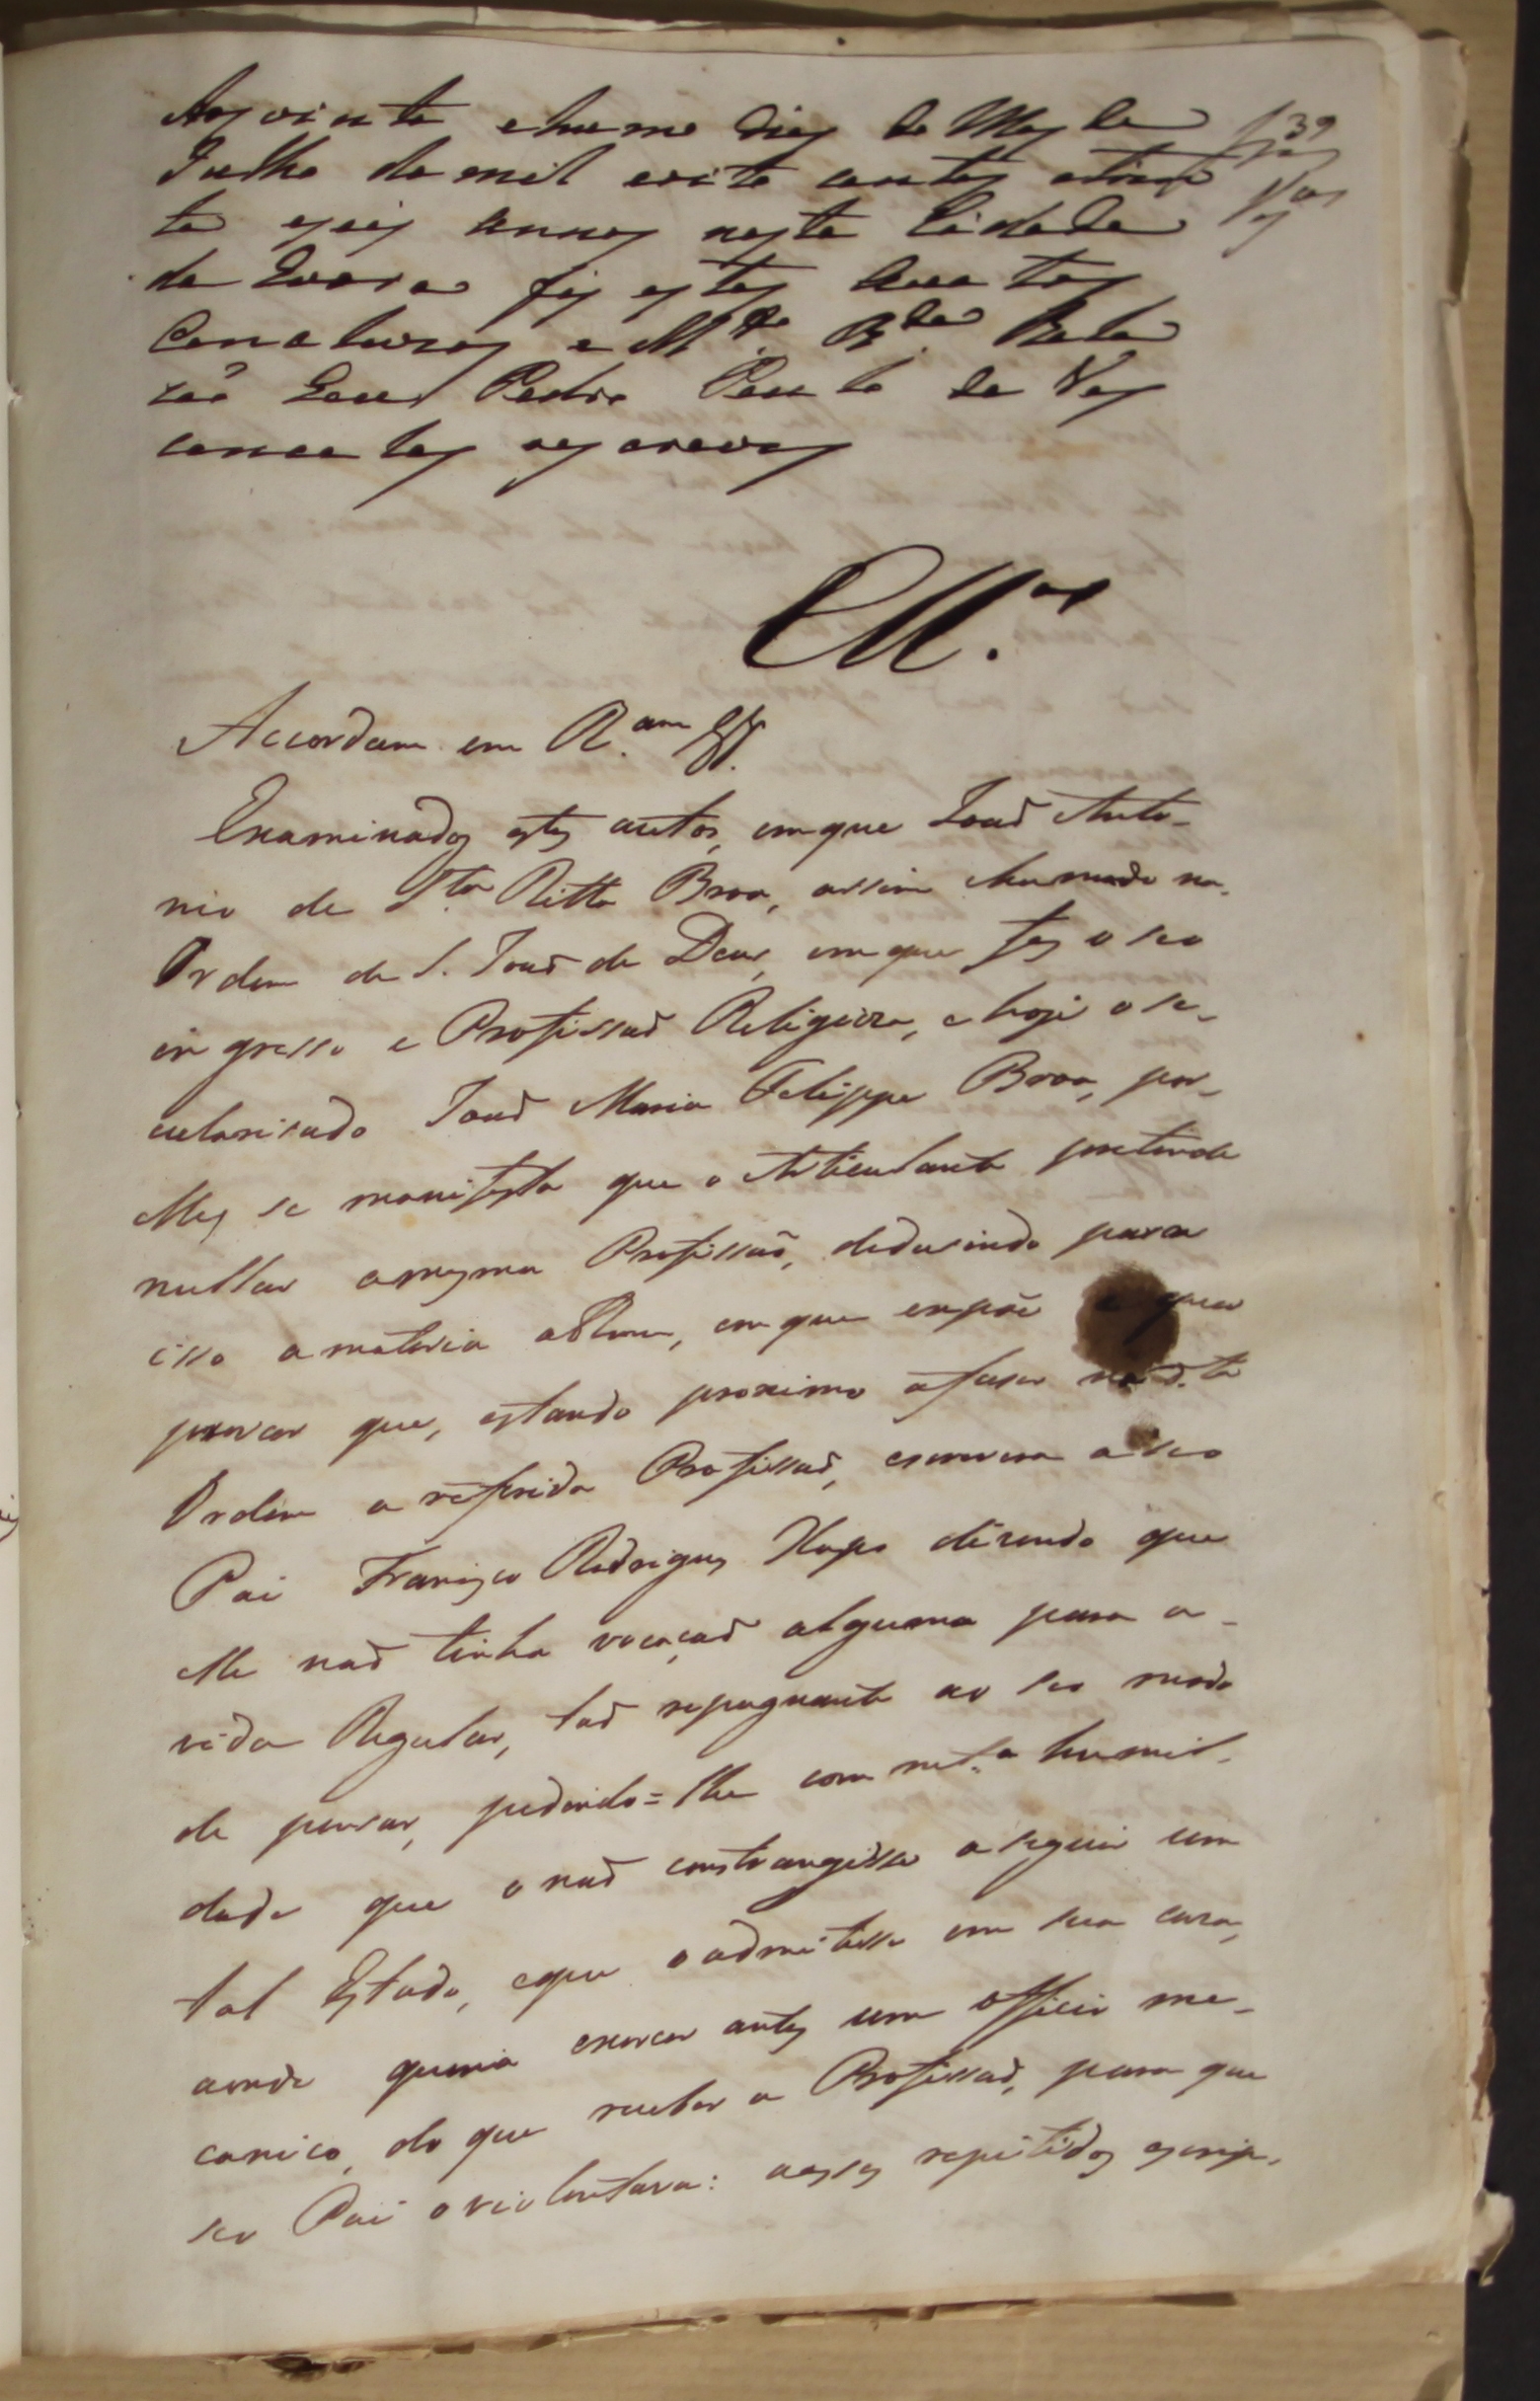 Aos vinte e hum dias do Mes de
Julho de mil oito centos e trin
ta e seis annos nesta Cidade
de Evora fiz estes Autos
Conclusos a M.to R.do Rela
tor Eu Pedro Paulo de Vas
concellos os escrevy
39
Cll.os
Accordam em R.am &&.
Examinados estes autos, em que Joaõ Anto-
nio de S.ta Ritta Broa, assim chamado na
Ordem de S. Joaõ de Deus, em que fez o seo
ingresso e Profissaõ Religioza, e hoje o se-
cularisado Joaõ Maria Felippe Broa, por
elles se manifesta que o Articulante pretende
nullar a mesma Profissaõ, dedusindo para
isso a materia a Ellem, em que expõe e quer
provar que, estando proximo a faser na d.ta
Ordem a referida Profissaõ, escrevera a seo
Pai Francisco Rodrigues dizendo que
elle naõ tinha vocaçaõ alguma para a
vida Regular, taõ repugnante ao seo modo
de pensar, pedindo=lhe com mt.a humil-
dade que o naõ constrangesse a seguir um
tal Estado, e que o admitisse em sua casa,
aonde queria exercer antes um officio me-
canico, do que receber a Profissaõ, para que
seo Pai o violentava: a esses repetidos escrip-